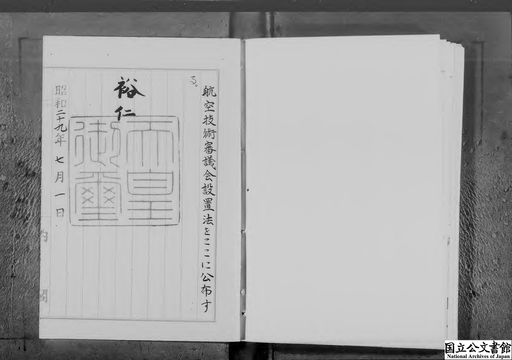 航空技術審議会設置法をここに公布す
る。
裕仁
天皇
御璽
昭和二十九年七月一日
内閣
国立公文書館
National Archives of Japan